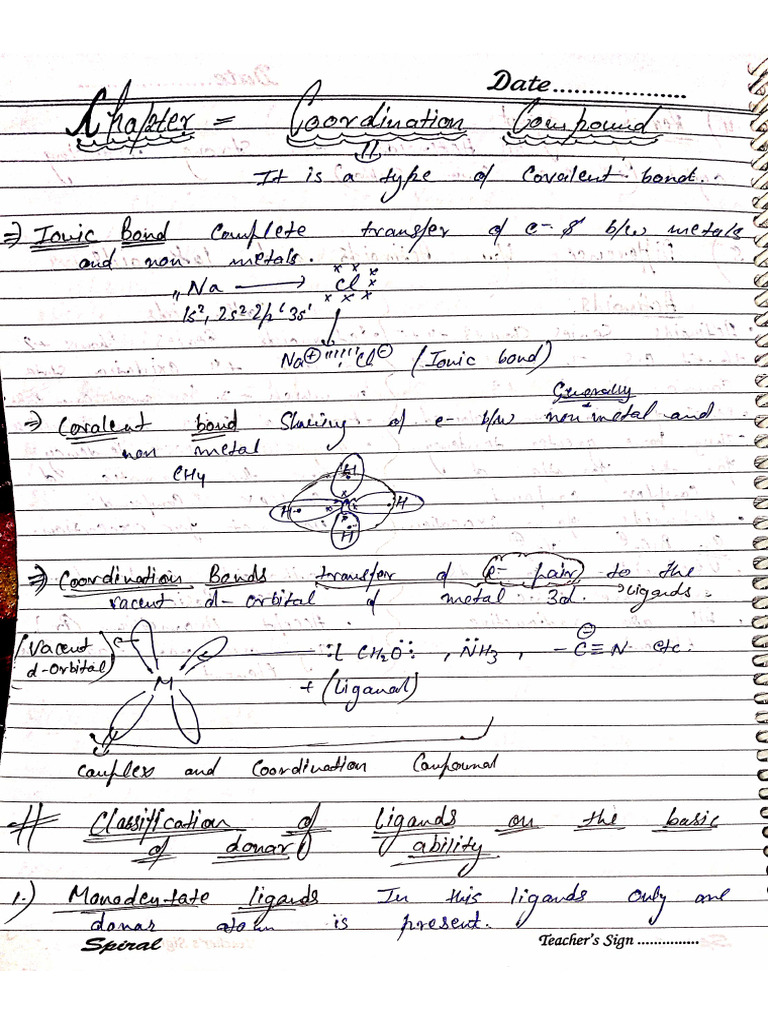 Date...................
Chapter = Coordination Compound
It is a type of Covalent bond.
⇒ Ionic Bond Complete transfer of e- s b/w metals
and non metals.
₁₁Na ⟶ Cl
1s², 2s² 2p⁶ 3s¹
Na⊕ '''''' Cl⊖ (Ionic bond)
Generally
⇒ Covalent bond Sharing of e- b/w non metal and
non metal
CH4
H
H H
H
⇒ Coordination Bonds transfer of e- pair to the
vacent d-orbital of metal 3d. ligands
(Vacent d-Orbital) M :L CH2O:, NH3, -C≡N etc.
+ (Ligand)
Complex and Coordination Compound
# Classification of Ligands on the basic
of donar ability
1.) Monodentate ligands In this ligands only one
donar atom is present.
Spiral Teacher's Sign ...............